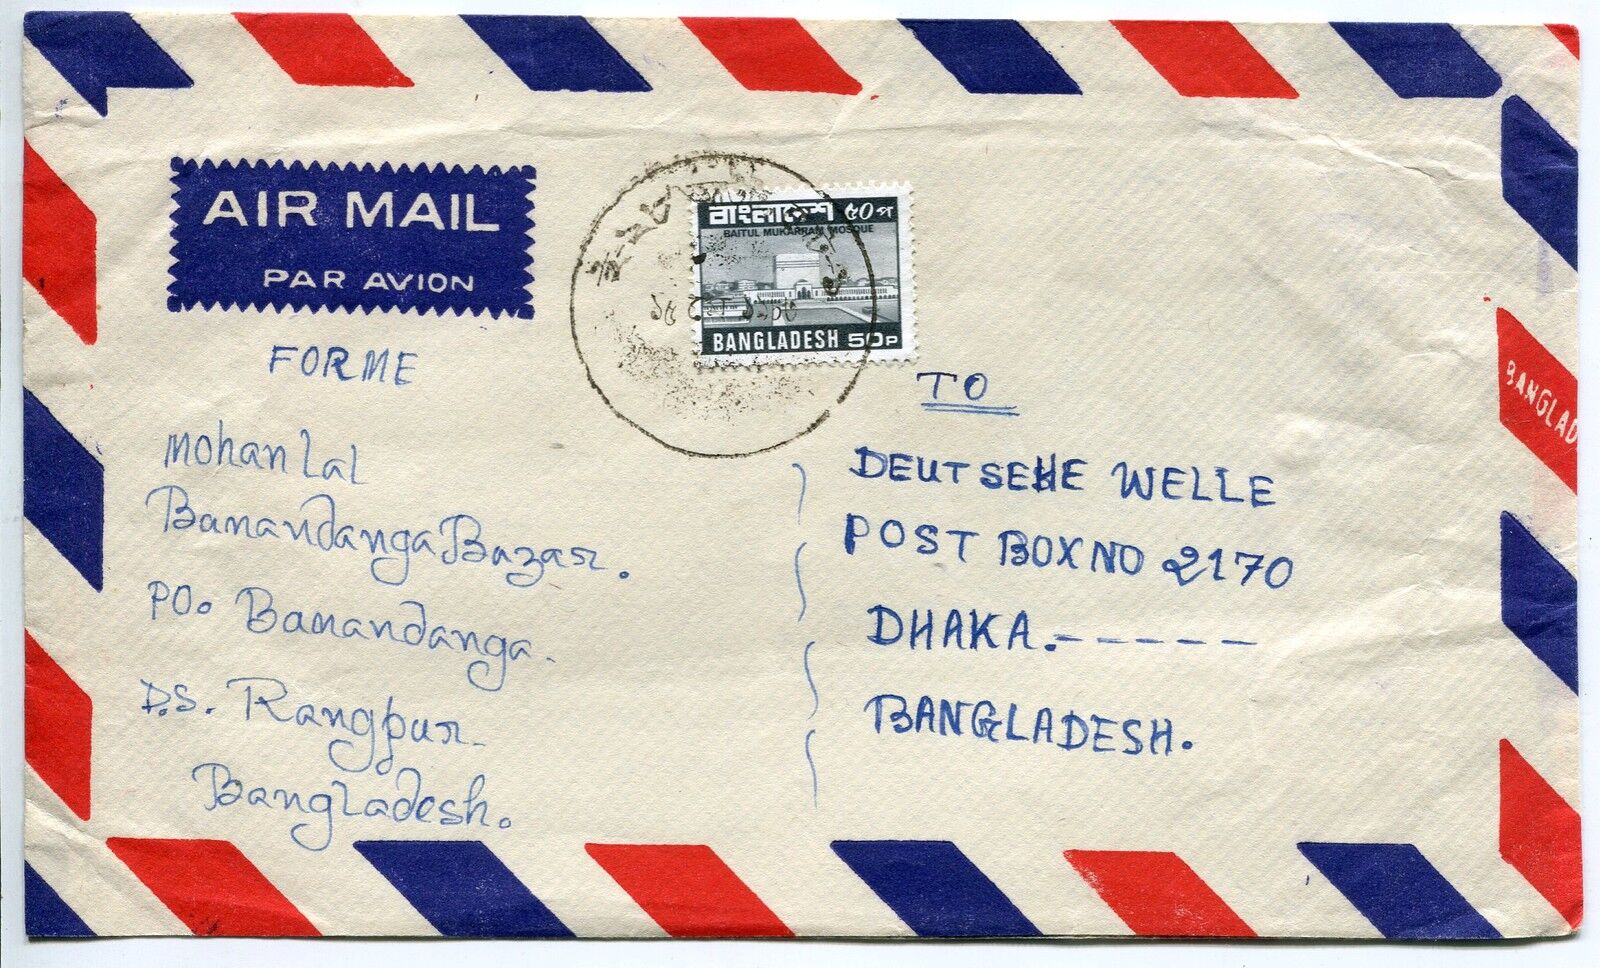 AIR MAIL
PAR AVION
বাংলাদেশ ৫০ প
BAITUL MUKARRAM MOSQUE
BANGLADESH 50P
FORME
Mohan Lal
Bamandanga Bazar.
PO. Bamandanga.
D.S. Rangpur.
Bangladesh.
TO
DEUTSEHE WELLE
POST BOX NO 2170
DHAKA.-----
BANGLADESH.
BANGLAD